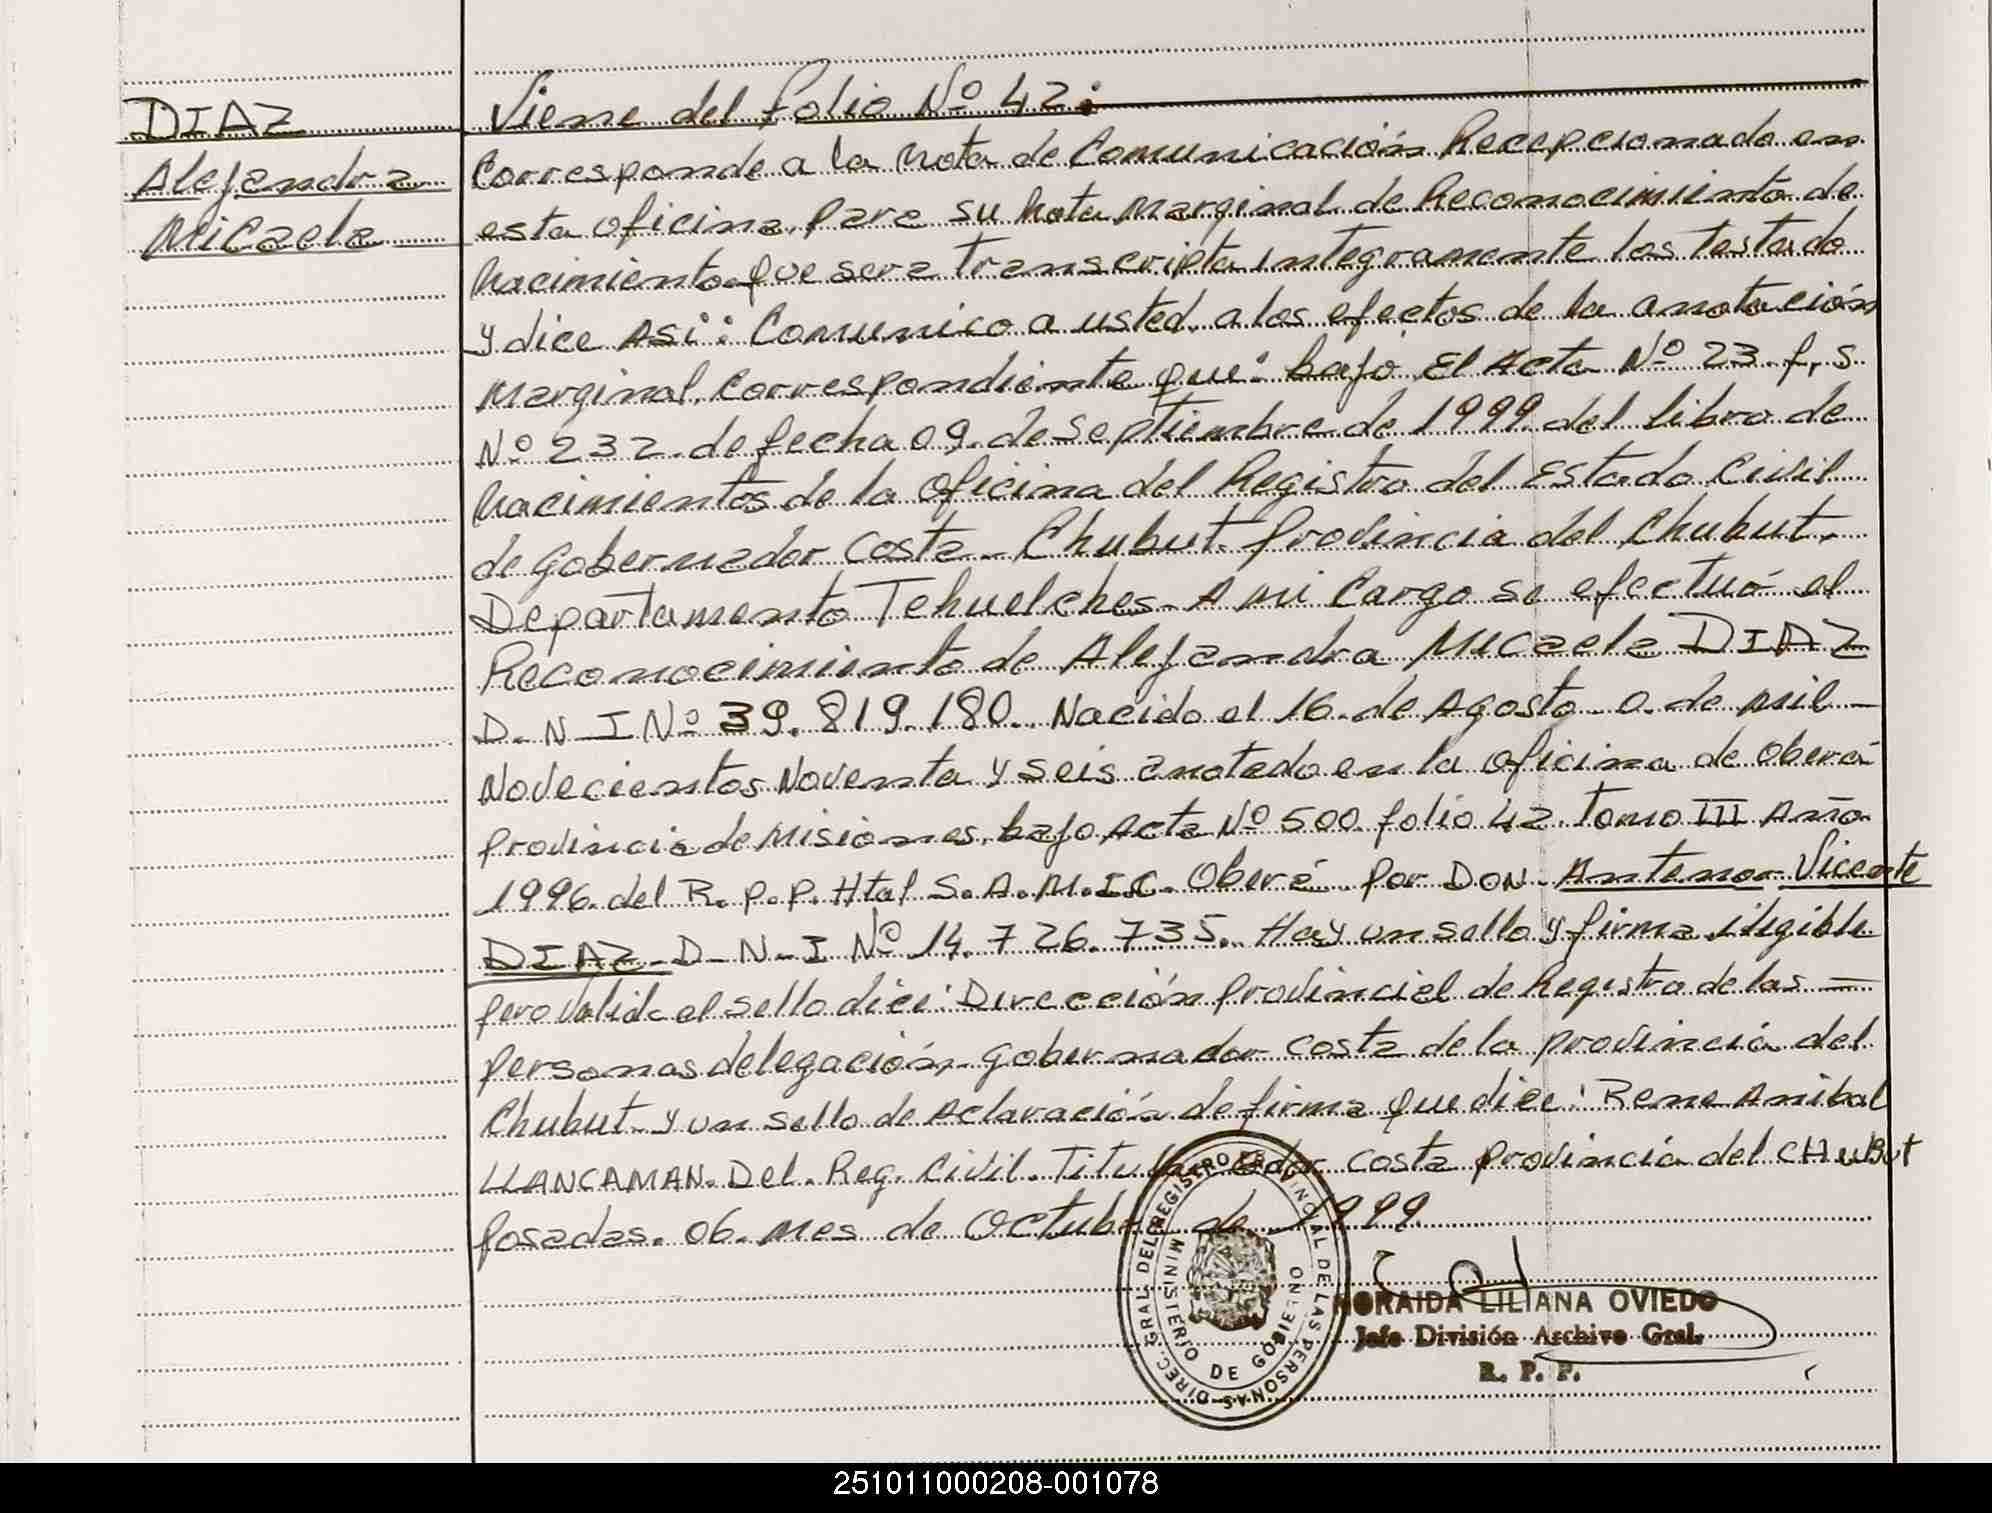 DIAZ
Alejandra
Micaela
Viene del folio Nº 42:
Corresponde a la Nota de Comunicación Recepcionado en
esta oficina, para su Nota Marginal de Reconocimiento de
Nacimiento que sera transcripta integramente los testado
y dice Así: Comunico a usted, a los efectos de la anotación
Marginal, Correspondiente que: bajo El Acta Nº 23. f, s
Nº 232. de fecha 09. de Septiembre de 1999. del libro de
Nacimientos de la Oficina del Registro del Estado Civil
de Gobernador Costa - Chubut. Provincia del Chubut.
Departamento Tehuelches - A mi Cargo se efectuó el
Reconocimiento de Alejandra Micaela DIAZ
D. N I Nº 39. 819. 180.. Nacido el 16. de Agosto. o. de mil -
Novecientos Noventa y seis anotado en la oficina de Oberá
Provincia de Misiones, bajo Acta Nº 500 folio 42. Tomo III Año
1996. del R. P. P. Htal S. A. M. I.C. Oberá por DON. Antenor Vicente
DIAZ - D - N - I Nº 14. 726. 735. Hay un sello y firma ilegible
pero Valida el sello dice: Dirección Provincial de Registro de las -
personas delegación Gobernador Costa de la provincia del
Chubut - y un sello de Aclaración de firma que dice: Rene Anibal
LLANCAMAN. Del. Reg. Civil. Titu dor Costa Provincia del CHuBut
Posadas. 06. Mes de Octubre de 1999.
DIREC. GRAL. DEL REGISTRO PROVINCIAL DE LAS PERSONAS
MINISTERIO DE GOBIERNO
NORAIDA LILIANA OVIEDO
Jefe División Archivo Gral.
R. P. P.
251011000208-001078